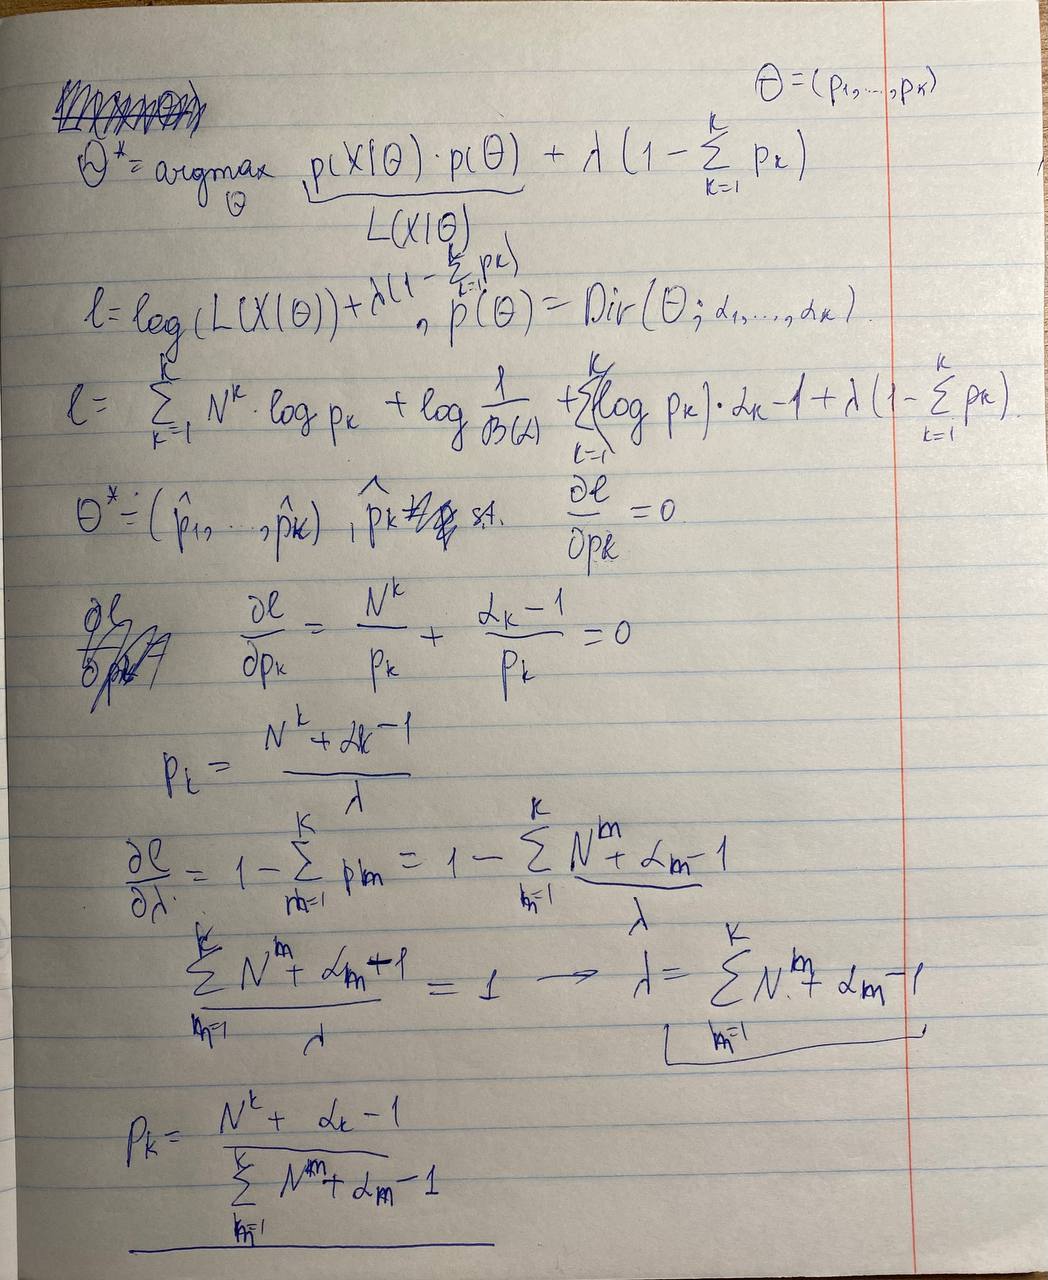 θ = (p₁, ..., pₖ)
θ* = argmax_θ p(X|θ) · p(θ) + λ (1 − ∑_{k=1}^{K} pₖ)
L(X|θ)
l = log(L(X|θ)) + λ(1 − ∑_{k=1}^{K} pₖ) , p(θ) = Dir(θ; α₁, ..., αₖ).
l = ∑_{k=1}^{K} Nᵏ · log pₖ + log 1/B(α) + ∑_{k=1}^{K} (log pₖ) · αₖ − 1 + λ (1 − ∑_{k=1}^{K} pₖ).
θ* = (p̂₁, ..., p̂ₖ) , p̂ₖ s.t. ∂l/∂pₖ = 0
∂l/∂pₖ = Nᵏ/pₖ + (αₖ − 1)/pₖ = 0
pₖ = (Nᵏ + αₖ − 1)/λ
∂l/∂λ = 1 − ∑_{m=1}^{K} pₘ = 1 − ∑_{m=1}^{K} (Nᵐ + αₘ − 1)/λ
(∑_{m=1}^{K} Nᵐ + αₘ + 1)/λ = 1 → λ = ∑_{m=1}^{K} Nᵐ + αₘ − 1
pₖ = (Nᵏ + αₖ − 1)/(∑_{m=1}^{K} Nᵐ + αₘ − 1)